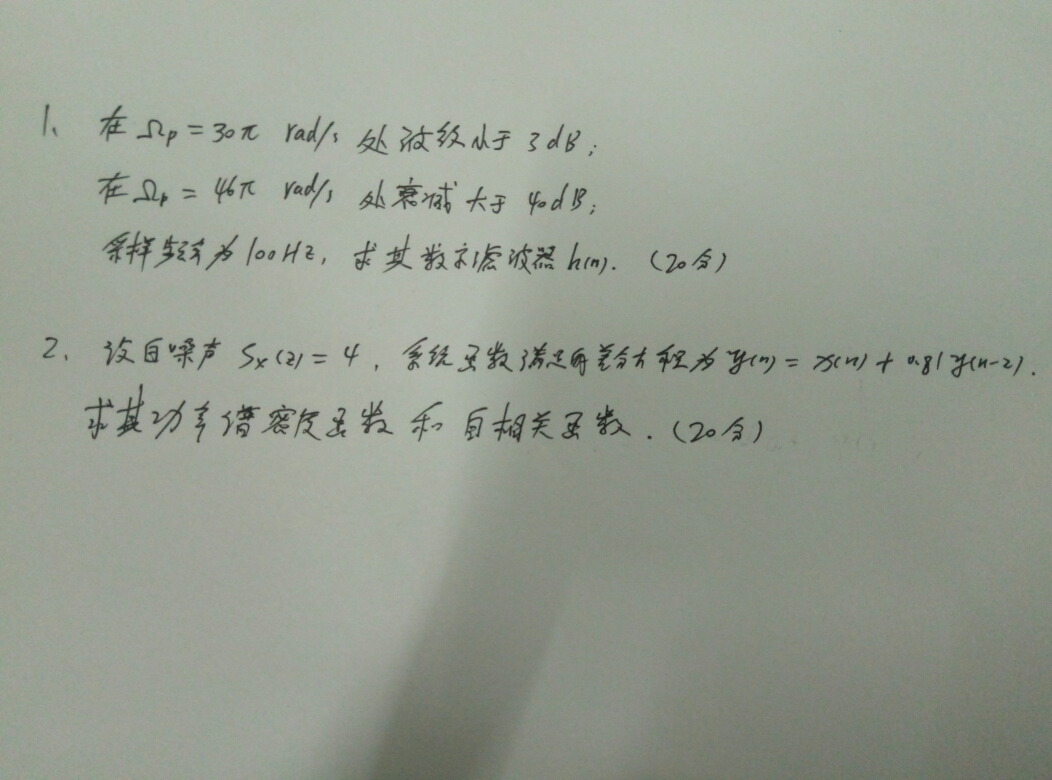 1、在Ωp=30π rad/s 处波纹小于3dB;
在Ωp=46π rad/s 处衰减大于40dB;
采样频率为100Hz,求其数字滤波器h(n).(20分)
2、设白噪声Sx(z)=4,系统函数满足的差分方程为y(n)=x(n)+0.81y(n-2).
求其功率谱密度函数和自相关函数.(20分)